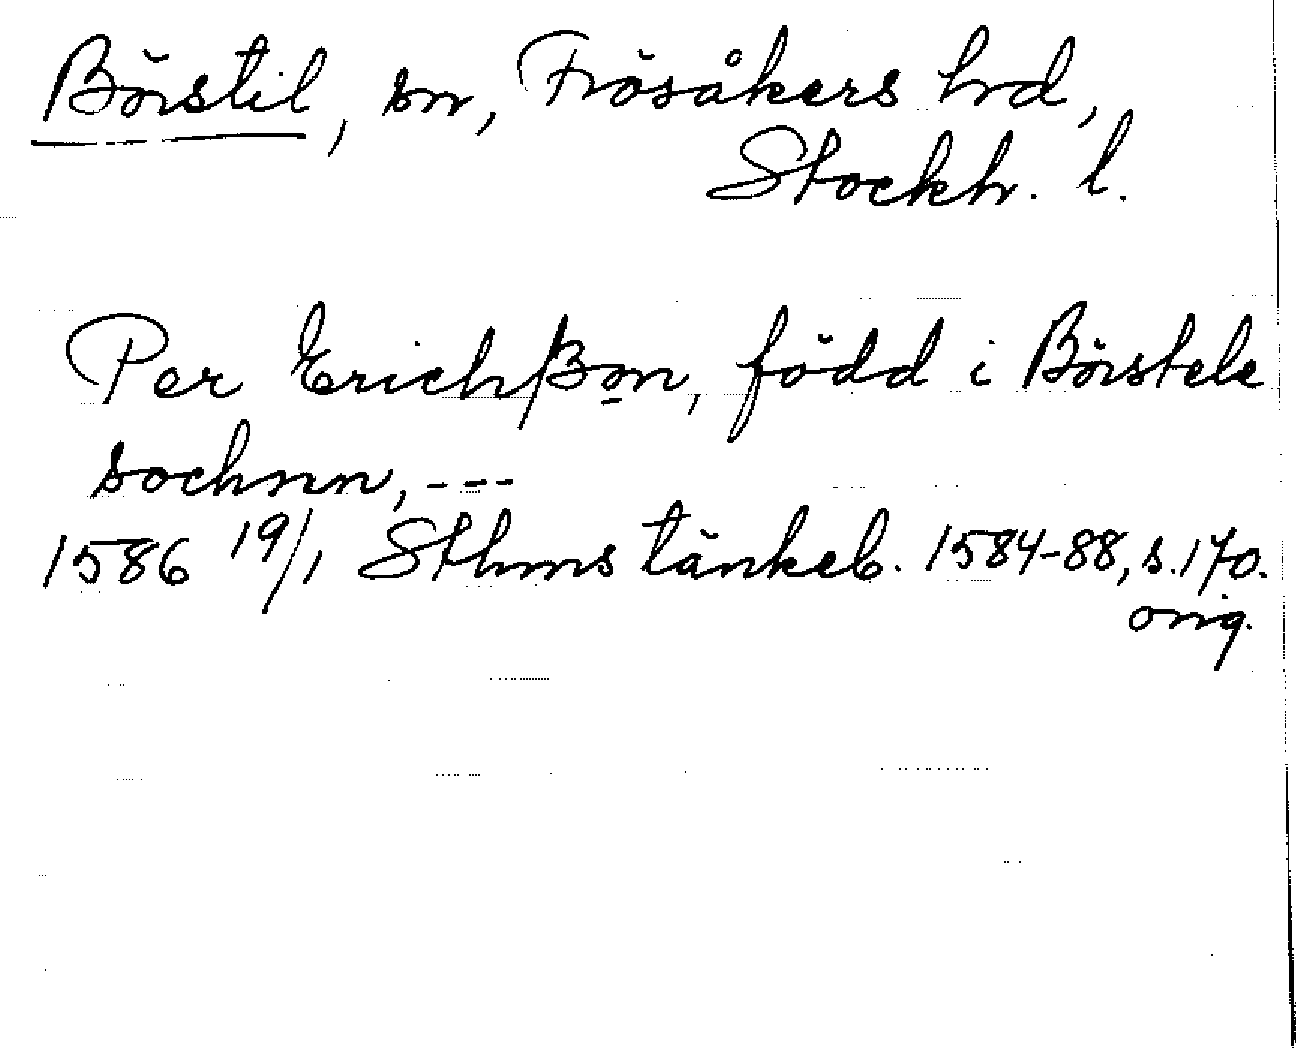 Börstil, sn, Frösåkers hrd,
Stockh. l.
Per Erichßon, född i Börstele
sochnn, ---
1586 19/1 Sthms tänkeb. 1584-88, s. 170.
orig.